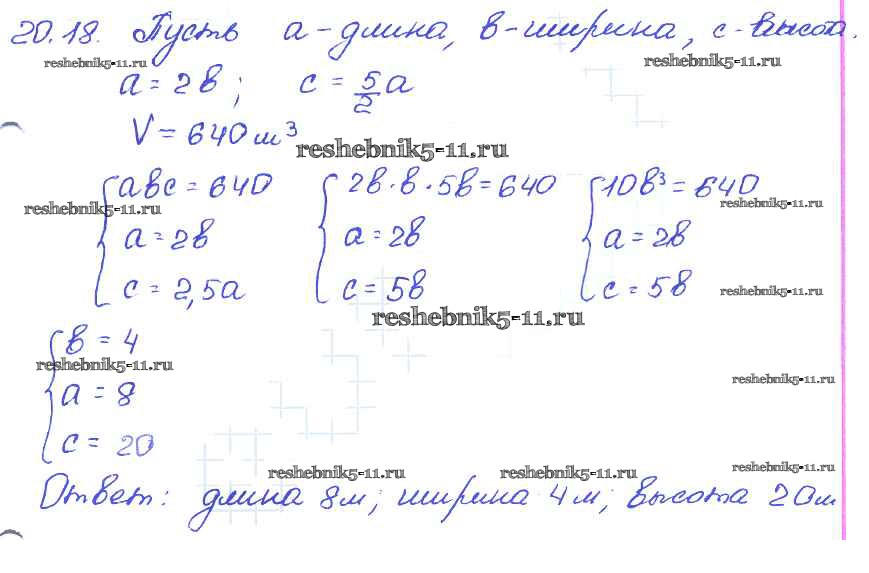 20.18. Пусть a-длина, в-ширина, c-высота.
reshebnik5-11.ru reshebnik5-11.ru
a = 2в ; c = 5/2 a
V = 640 м³
reshebnik5-11.ru
{ aвc = 640 { 2в · в · 5в = 640 { 10в³ = 640
reshebnik5-11.ru reshebnik5-11.ru
a = 2в a = 2в a = 2в
c = 2,5a c = 5в c = 5в
reshebnik5-11.ru
reshebnik5-11.ru
{ в = 4
reshebnik5-11.ru
reshebnik5-11.ru
a = 8
c = 20
reshebnik5-11.ru reshebnik5-11.ru reshebnik5-11.ru
Ответ: длина 8м; ширина 4м; высота 20м